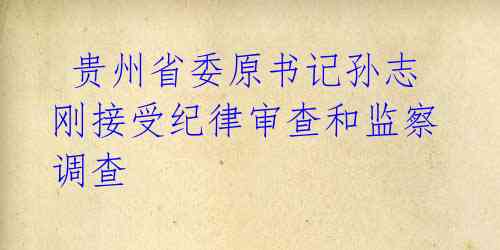 贵州省委原书记孙志
刚接受纪律审查和监察
调查